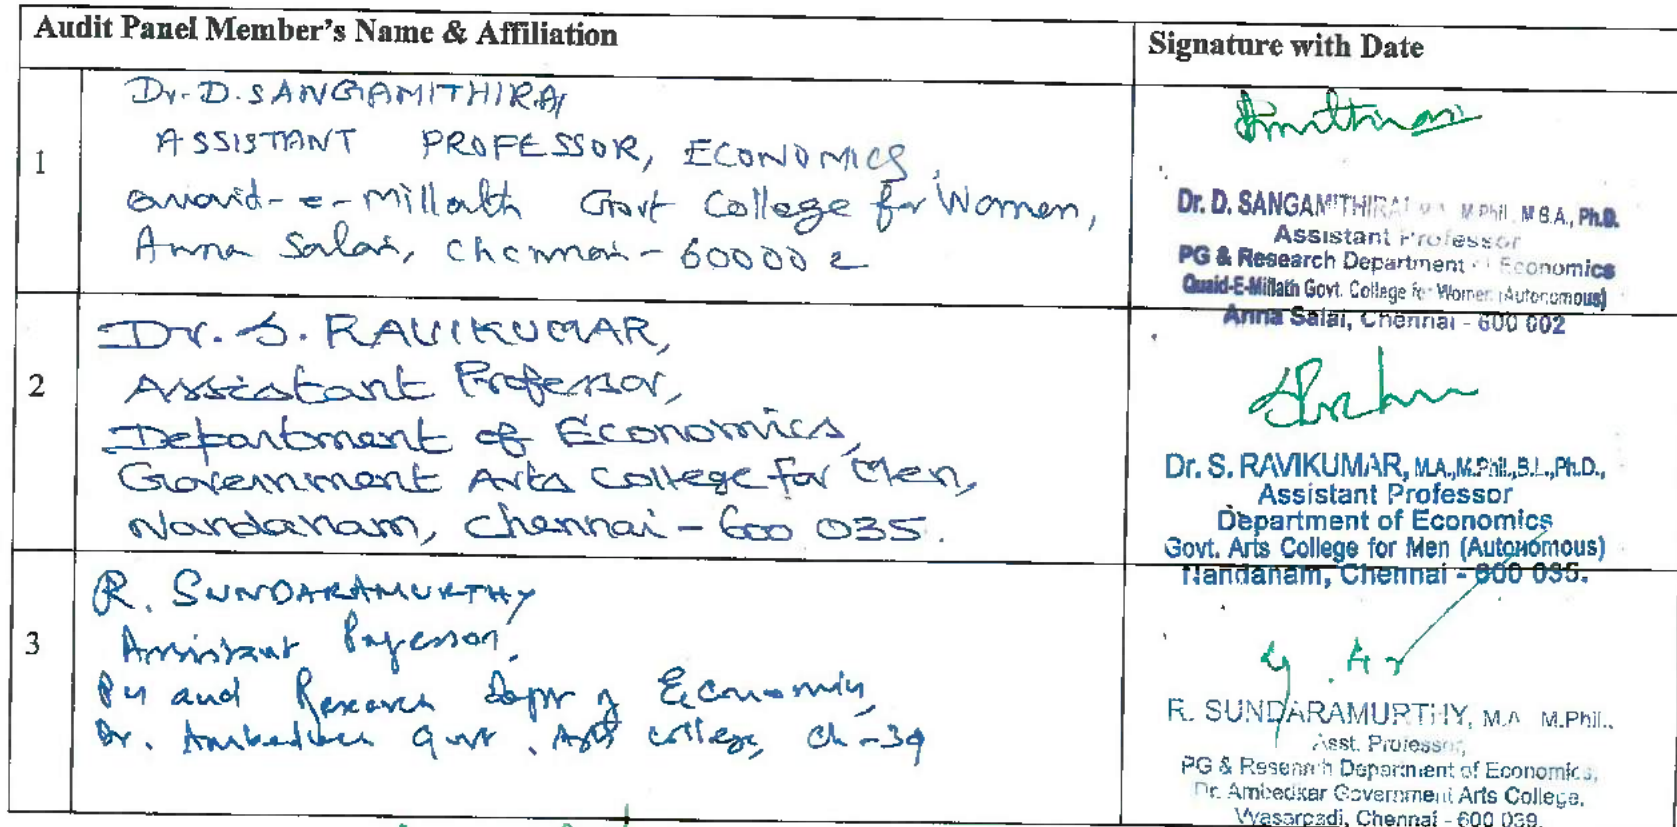 Audit Panel Member's Name & Affiliation
Signature with Date
1
Dr. D. SANGAMITHIRAI
ASSISTANT PROFESSOR, ECONOMICS,
Quaid-e-Millath Govt College for Women,
Anna Salai, Chennai - 600002
Dr. D. SANGAMITHIRAI M.A., M.Phil., M.B.A., Ph.D.
Assistant Professor
PG & Research Department of Economics
Quaid-E-Millath Govt. College for Women (Autonomous)
Anna Salai, Chennai - 600 002
2
Dr. S. RAVIKUMAR,
Assistant Professor,
Department of Economics,
Government Arts College for Men,
Nandanam, Chennai - 600 035.
Dr. S. RAVIKUMAR, M.A.,M.Phil.,B.L.,Ph.D.,
Assistant Professor
Department of Economics
Govt. Arts College for Men (Autonomous)
Nandanam, Chennai - 600 035.
3
R. SUNDARAMURTHY
Assistant Professor,
PG and Research Dept of Economics,
Dr. Ambedkar Govt. Arts College, Ch-39
R. SUNDARAMURTHY, M.A. M.Phil.,
Asst. Professor,
PG & Research Department of Economics,
Dr. Ambedkar Government Arts College,
Vyasarpadi, Chennai - 600 039.